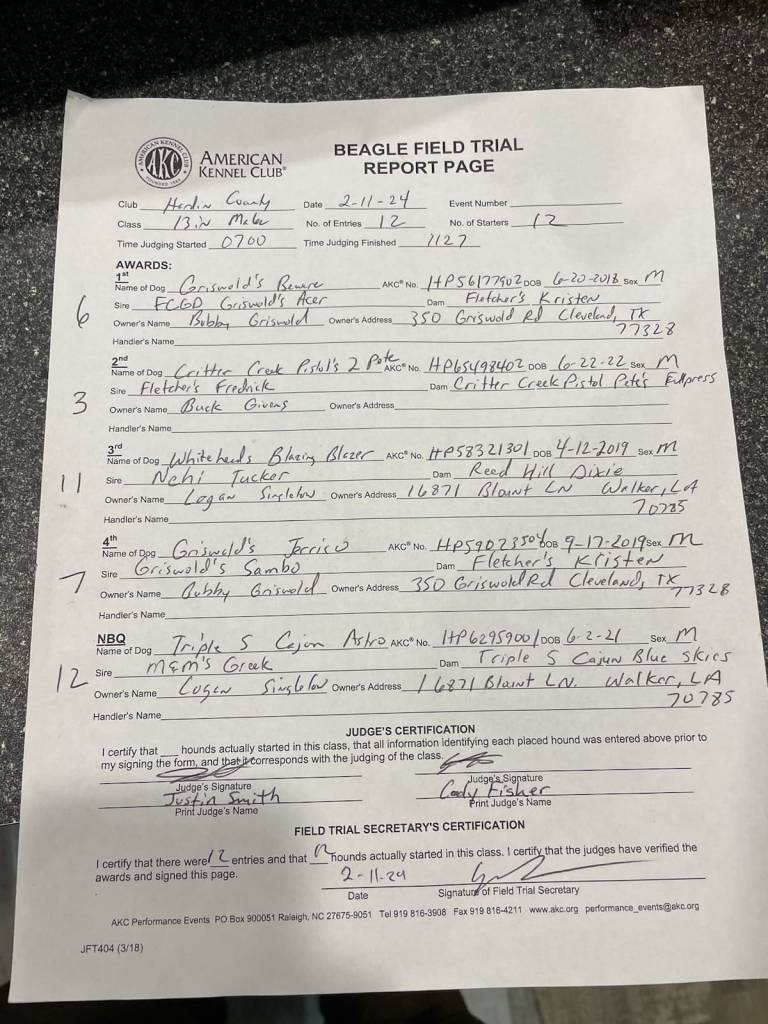 AMERICAN KENNEL CLUB
FOUNDED 1884
AKC
AMERICAN
KENNEL CLUB®
BEAGLE FIELD TRIAL
REPORT PAGE
Club Hardin County Date 2-11-24 Event Number
Class 13 in Males No. of Entries 12 No. of Starters 12
Time Judging Started 0700 Time Judging Finished 1127
AWARDS:
1st
Name of Dog Griswold's Beware AKC® No. HP56177902 DOB 6-20-2018 Sex M
6 Sire FCGD Griswold's Acer Dam Fletcher's Kristen
Owner's Name Bubby Griswold Owner's Address 350 Griswold Rd Cleveland, TX
77328
Handler's Name
2nd
Name of Dog Critter Creek Pistol's 2 Pete AKC® No. HP65498402 DOB 6-22-22 Sex M
Sire Fletcher's Fredrick Dam Critter Creek Pistol Pete's Fullpress
3 Owner's Name Buck Givens Owner's Address
Handler's Name
3rd
Name of Dog Whiteheads Blazing Blazer AKC® No. HP58321301 DOB 4-12-2019 Sex M
11 Sire Nehi Tucker Dam Reed Hill Dixie
Owner's Name Logan Singleton Owner's Address 16871 Blount LN Walker, LA
70785
Handler's Name
4th
Name of Dog Griswold's Jerrico AKC® No. HP59023504 DOB 9-17-2019 Sex M
7 Sire Griswold's Sambo Dam Fletcher's Kristen
Owner's Name Bubby Griswold Owner's Address 350 Griswold Rd Cleveland, TX
77328
Handler's Name
NBQ
Name of Dog Triple S Cajun Astro AKC® No. HP62959001 DOB 6-2-21 Sex M
12 Sire M&M's Greek Dam Triple S Cajun Blue Skies
Owner's Name Logan Singleton Owner's Address 16871 Blount LN. Walker, LA
70785
Handler's Name
JUDGE'S CERTIFICATION
I certify that ___ hounds actually started in this class, that all information identifying each placed hound was entered above prior to
my signing the form, and that it corresponds with the judging of the class.
Judge's Signature Judge's Signature
Justin Smith Cody Fisher
Print Judge's Name Print Judge's Name
FIELD TRIAL SECRETARY'S CERTIFICATION
I certify that there were 12 entries and that 12 hounds actually started in this class. I certify that the judges have verified the
awards and signed this page.
2-11-24
Date Signature of Field Trial Secretary
AKC Performance Events PO Box 900051 Raleigh, NC 27675-9051 Tel 919 816-3908 Fax 919 816-4211 www.akc.org performance_events@akc.org
JFT404 (3/18)